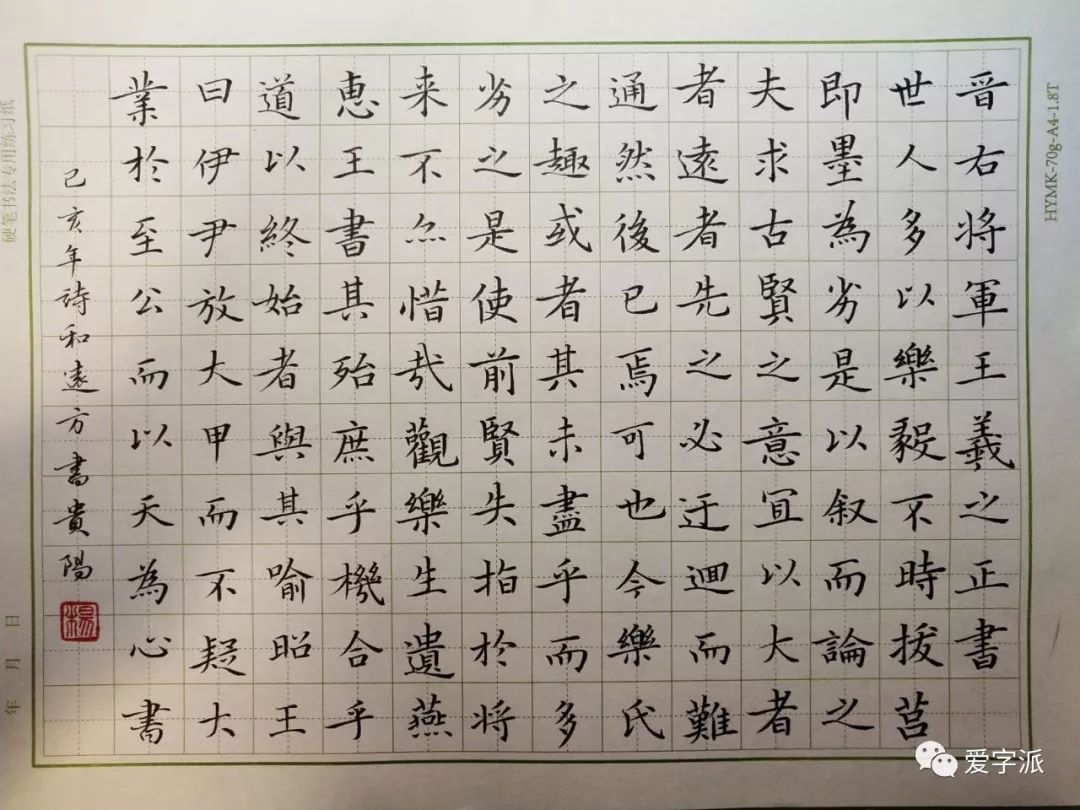 晉右將軍王羲之正書
世人多以樂毅不時拔莒
即墨為劣是以叙而論之
夫求古賢之意宜以大者
者遠者先之必迂迴而難
通然後已焉可也今樂氏
之趣或者其未盡乎而多
劣之是使前賢失指於將
来不亦惜哉觀樂生遺燕
惠王書其殆庶乎機合乎
道以終始者與其喻昭王
曰伊尹放大甲而不疑大
業於至公而以天為心書
己亥年詩和遠方書貴陽
楊
硬笔书法专用练习纸
年 月 日
HYMK-70g-A4-1.8T
爱字派